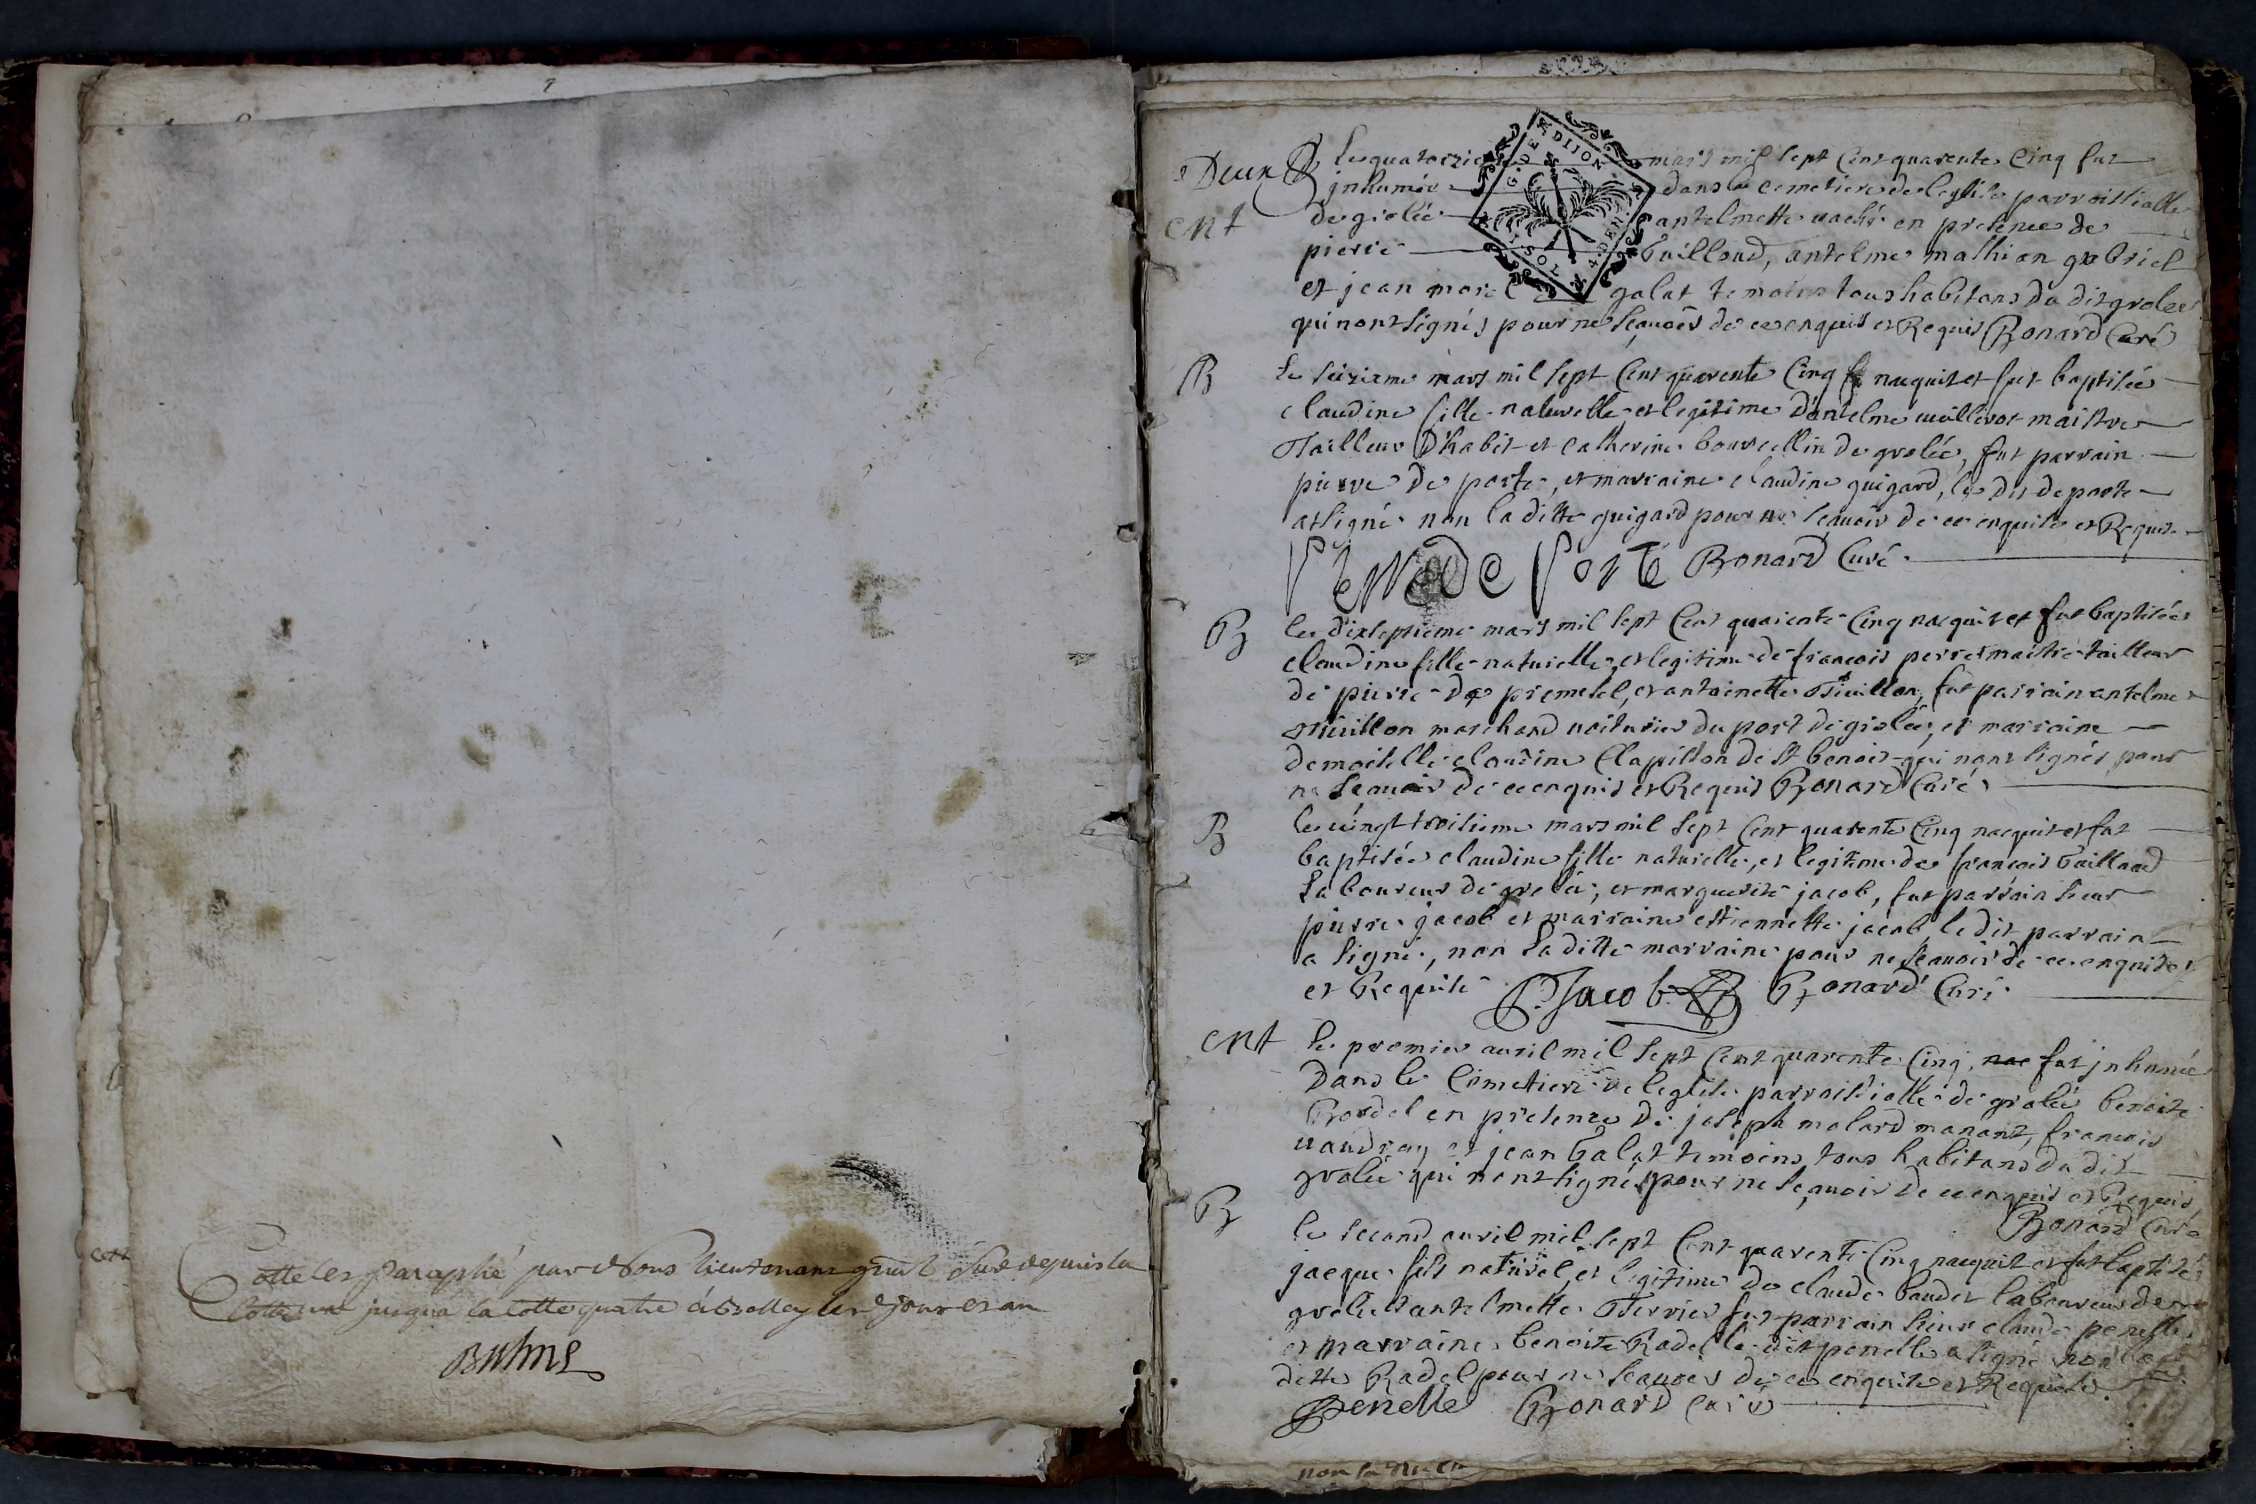 Cotté et Paraphé par Nous Lieutenant gnral depuis la
Cotte une jusqu'a la Cotte quatre à Belley les jour et an
Deux
G. DE DIJON
SOL. 4. DEN.
Le quatorzie mars mil sept Cent quarente Cinq fut
Ent
inhumée dans le cemetiere de leglise parroissialle
de grolée antelmette vaché en presence de
pierre Guilloud, antelme mathian gabriel
et jean morel galat temoins tous habitans du dit grolee
qui nont signés pour ne scauoir de ce enquis et Requis Bonard Curé
B
Le seizieme mars mil sept Cent quarente Cinq nacquit et fut baptisée
claudine fille naturelle et legitime d'antelme maistre
Tailleur D'habit et catherine bourcellin de grolée, fut parrain
pierre de porte, et marraine claudine guigard, le dit deporte
at signé non la ditte guigard pour ne scauoir de ce enquise et Requise
Pierre De Porte Bonard Curé
B
le dixseptieme mars mil sept Cent quarente Cinq nacquit et fut baptisée
claudine fille naturelle, et legitime de francois perret maitre tailleur
de pierre de premesel, et antoinette Tieuillon, fut parrain antelme
Tieuillon marchand voiturier du port de grolée, et marraine
demoiselle claudine Clapisson de St benoit qui nont signés pour
ne Scauoir de ce enquis et Requis Bonard Curé
B
le vingt troisieme mars mil sept Cent quarente Cinq nacquit et fut
baptisée claudine fille naturelle, et legitime de francois Guillaud
Laboureur de grolée, et marguerite jacob, fut parrain sieur
pierre jacob et marraine estiennette jacob, le dit parrain
a signé, non la ditte marraine pour ne scauoir de ce enquise
et Requise P. Jacob Bonard Curé
Ent
le premier auril mil sept Cent quarente Cinq, nac fut inhumée
Dans le Cimetiere de leglise parroissialle de grolée benoite
Bordel en presence de joseph molard manant, francois
vaudray et jean Galat temoins tous habitans du dit
grolée qui nont signés pour ne scauoir de ce enquis et Requis
Bonard Curé
B
le second auril mil sept Cent quarente Cinq nacquit et fut baptisé
jacque fils naturel, et legitime de claude baudet laboureur de
grolée et antelmette Terrier fut parrain sieur claude penelle
et marraine benoite Radel le dit penelle a signé non la
ditte Radel pour ne scauoir de ce enquise et Requise
Penelle Bonard Curé